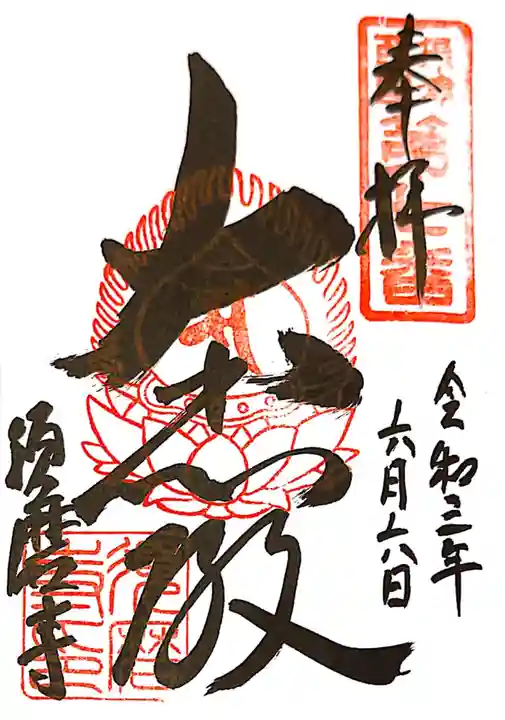 奉拝
令和三年
六月六日
大悲殿
須磨寺